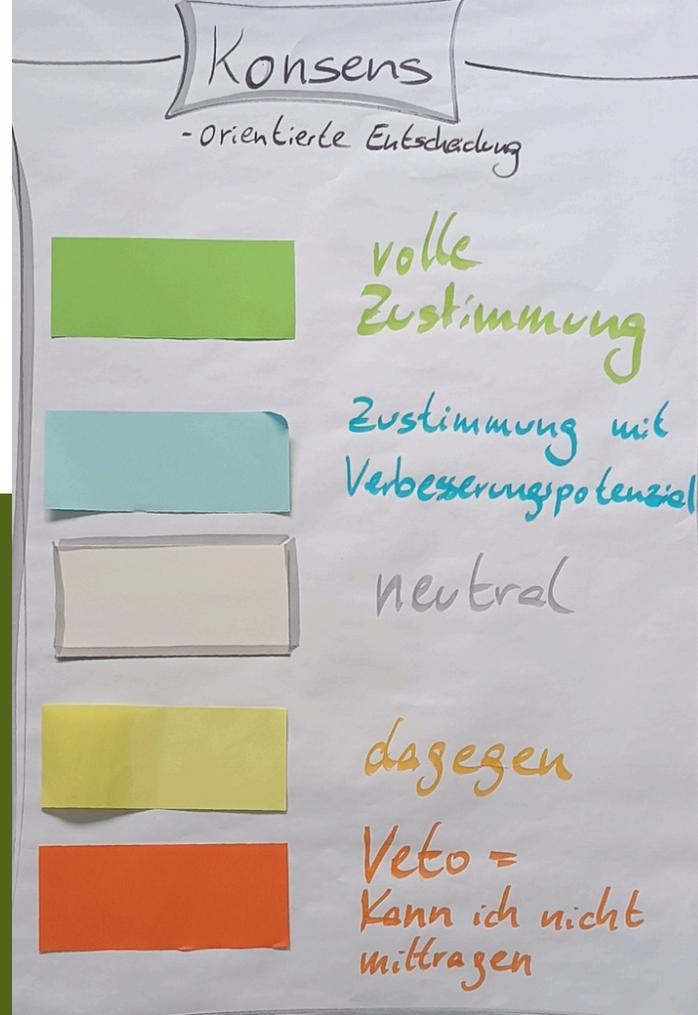 Konsens
-orientierte Entscheidung
volle
Zustimmung
Zustimmung mit
Verbesserungspotenzial
neutral
dagegen
Veto =
Kann ich nicht
mittragen